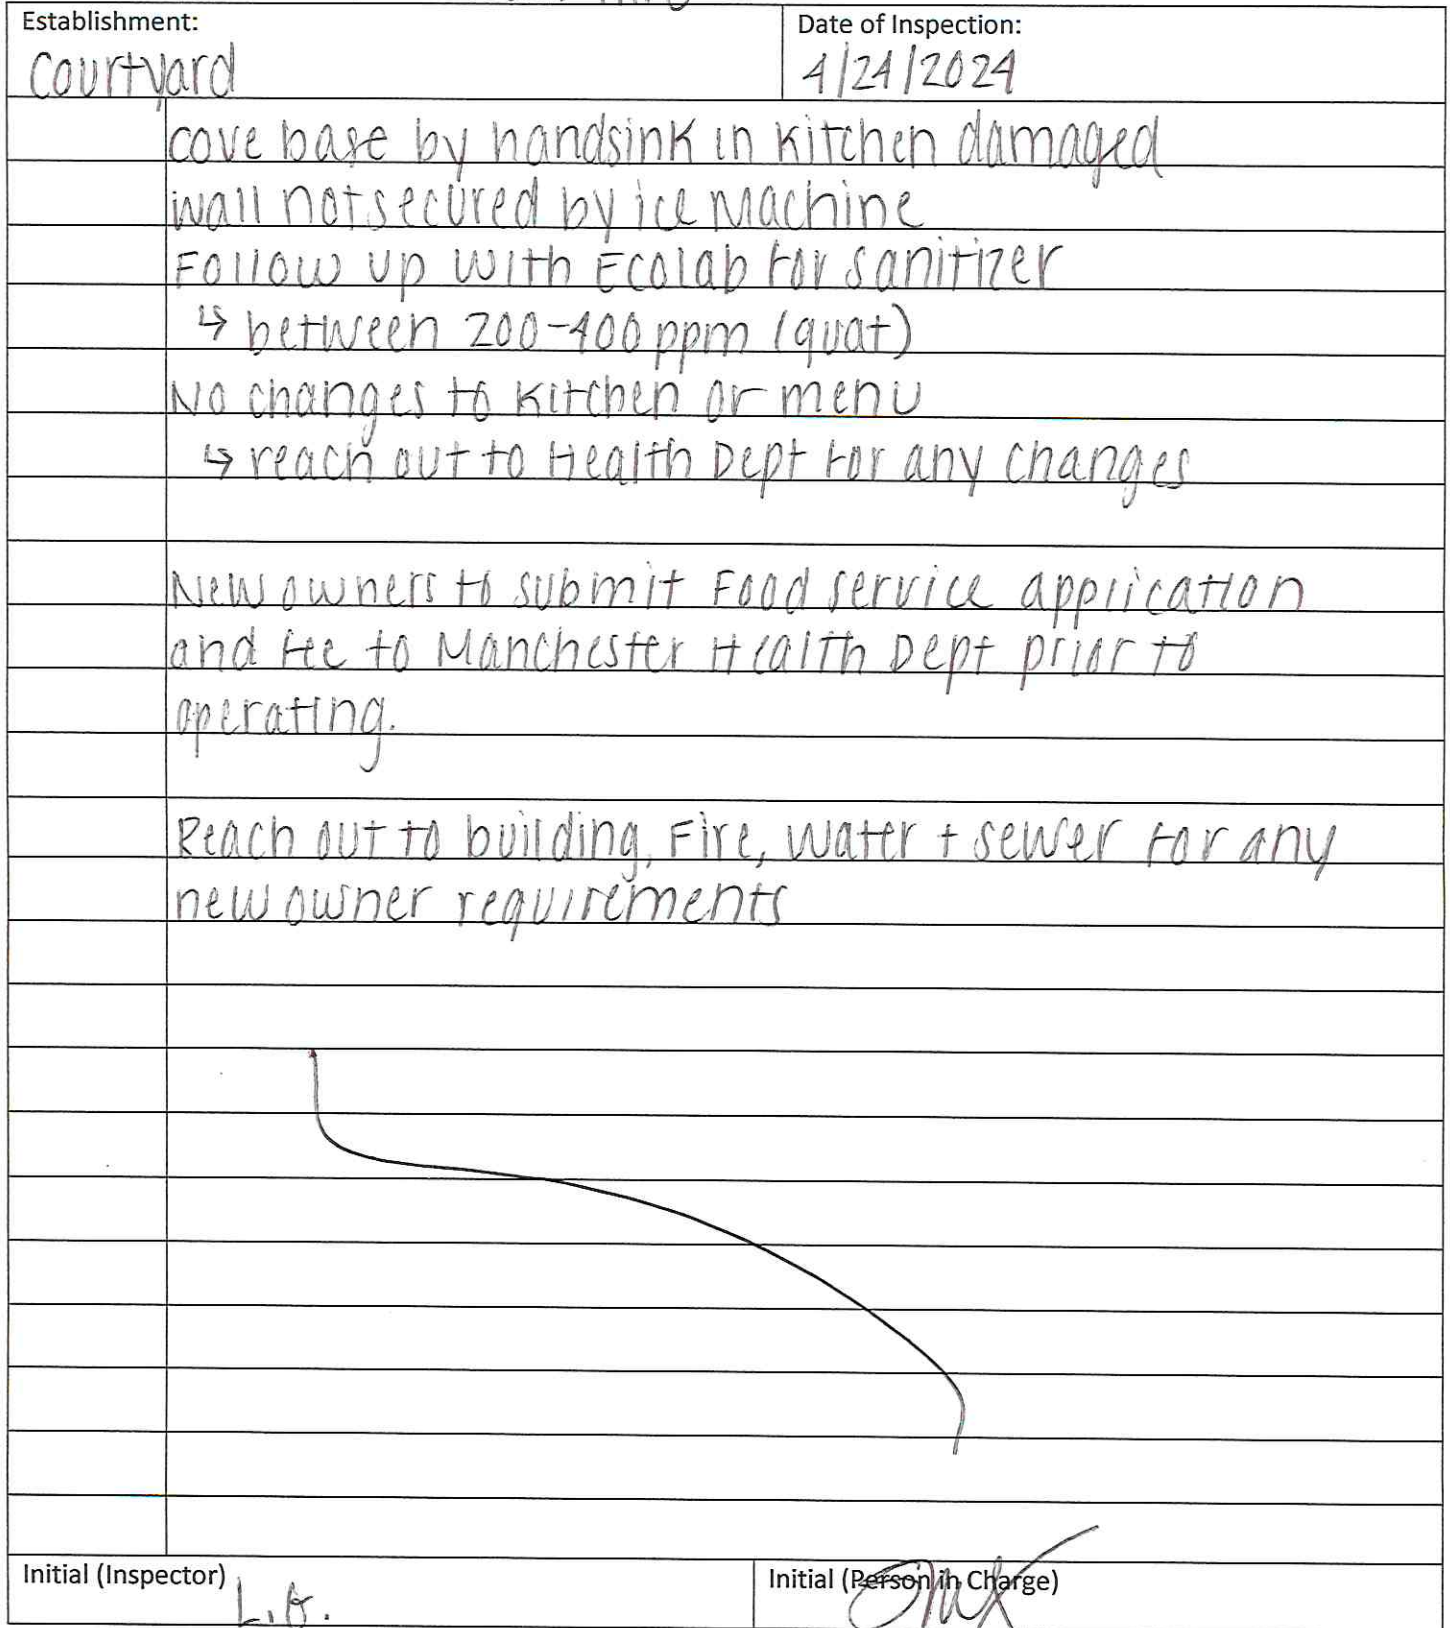 Establishment:
Courtyard
Date of Inspection:
4/24/2024
cove base by handsink in kitchen damaged
wall not secured by ice machine
Follow up with Ecolab for sanitizer
↳ between 200-400 ppm (quat)
No changes to kitchen or menu
↳ reach out to Health Dept for any changes
New owners to submit Food service application
and fee to Manchester Health Dept prior to
operating.
Reach out to building, Fire, Water + sewer for any
new owner requirements
Initial (Inspector)
Initial (Person in Charge)